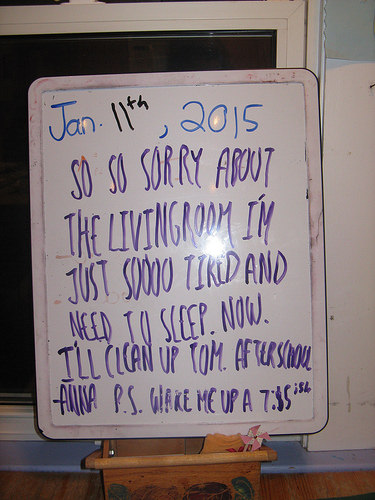 Jan. 11th, 2015
SO SO SORRY ABOUT
THE LIVINGROOM I'M
JUST SOOOO TIRED AND
NEED TO SLEEP. NOW.
I'LL CLEAN UP TOM. AFTERSCHOOL
-ANNA P.S. WAKE ME UP A 7:15ish